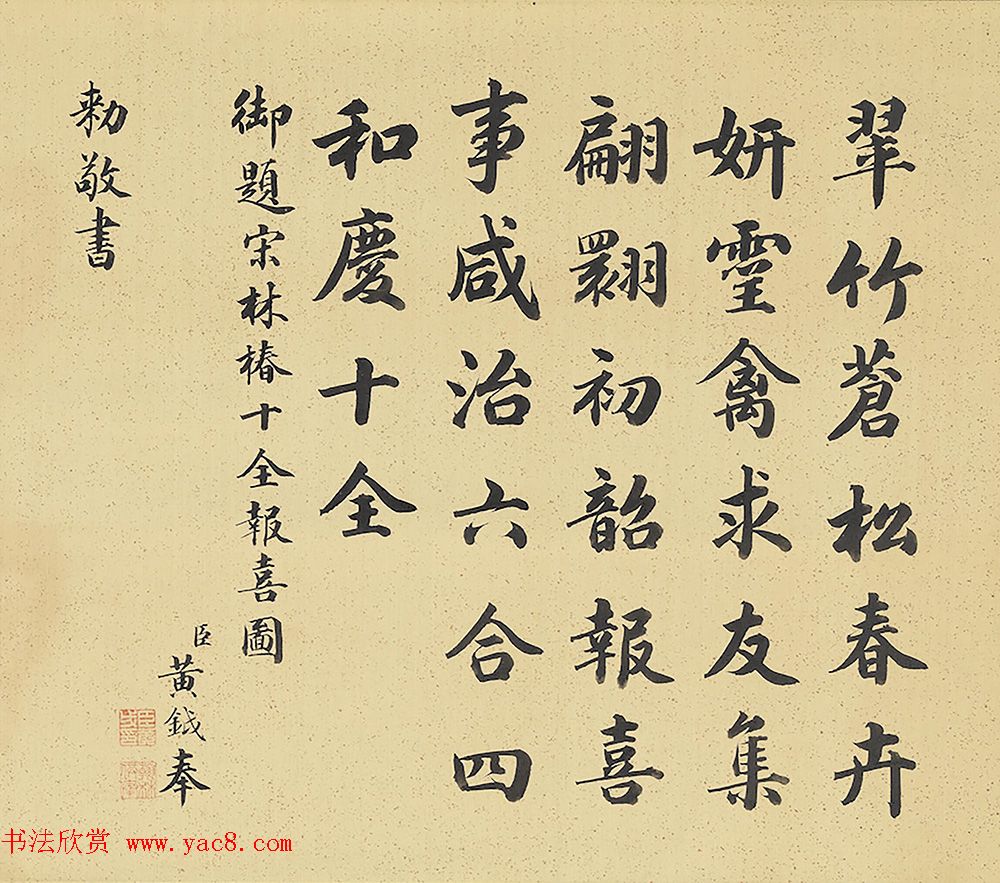 翠竹蒼松春卉
妍靈禽求友集
翩翾初韶報喜
事咸治六合四
和慶十全
御題宋林椿十全報喜圖
臣黃鉞奉
勑敬書
书法欣赏 www.yac8.com